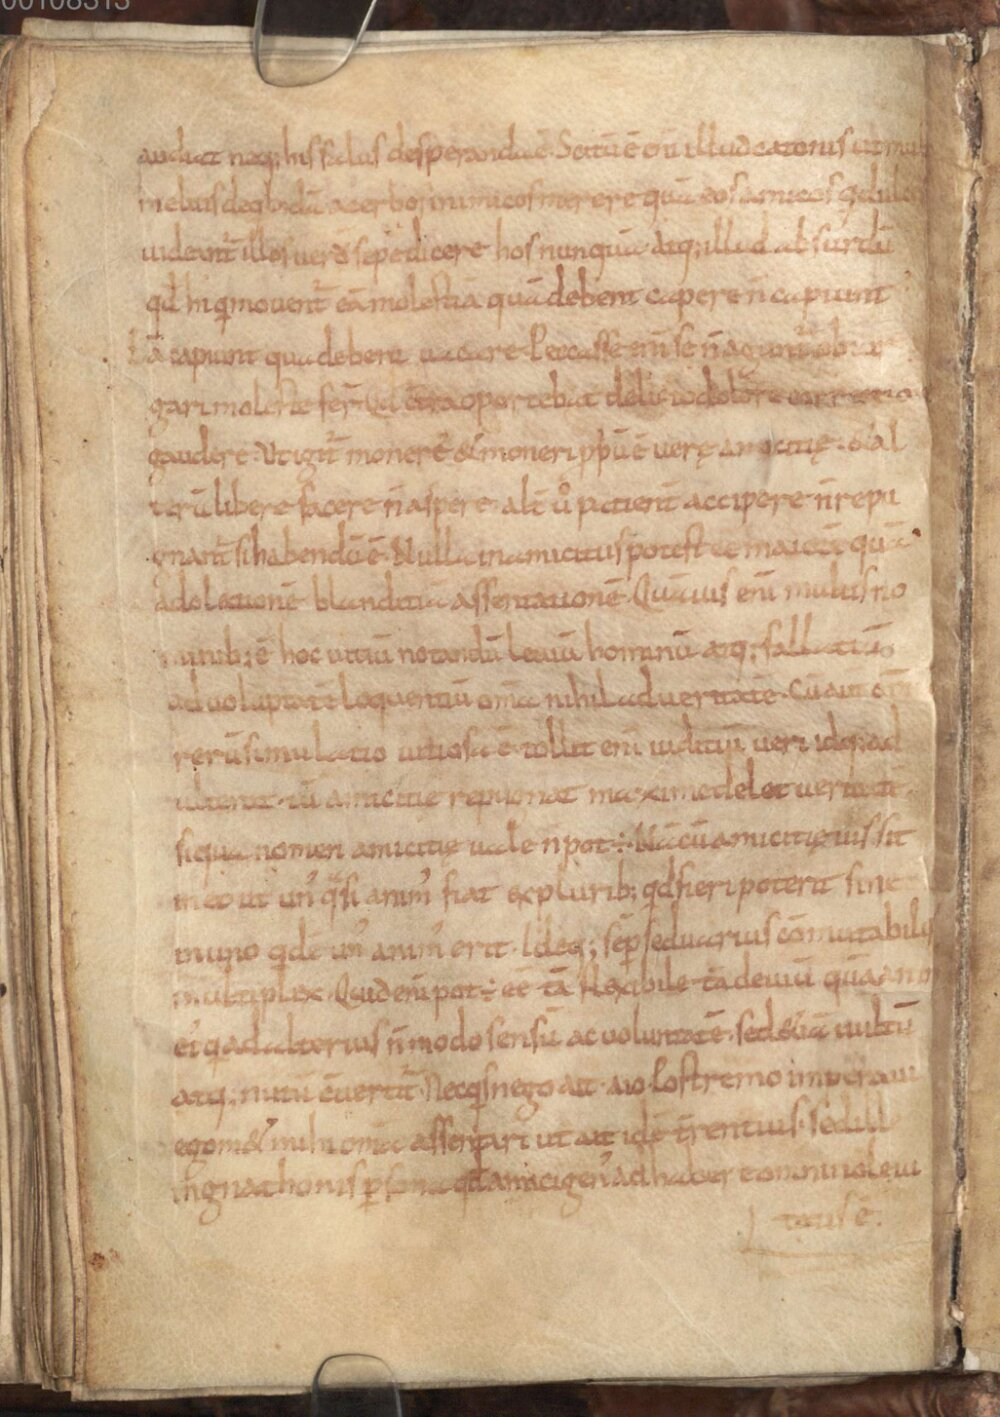 00108313
audiat neq; his salus desperanda ē. Scitū ē eni illud catonis ut mul
melius de qbdā acerbos inimicos merere quā eos amicos q dulces
uideant' illos uerū sepe dicere hos nunquā atq; illud absurdū
qd hi q monent' eā molestiā quā debent capere n̄ capiunt
Eā capiunt qua debent uacare Peccasse eni se n̄ agunt' obiur
gari moleste fer̄ Qd c̄tra oportebat delicto dolore correctio
gaudere. Ut igit' monere & moneri ppū ē uerę amicitię. & al
terū libere facere n̄ aspere. alt̄ ů patient̄ accipere n̄ repu
gnant' si habendū ē. Nulla in amicitiis potest eē maiorē quā
adolationē blanditiā assentationē. Quāuis eni multis no
minib; ē hoc uitiū notandū leuiū hominū atq; fallatiū
ad uoluptatē loquentiū om̄a nihil ad ueritatē. Cū aut om̄
rerū simulatio uitiosa ē tollit eni iuditiū ueri idq; ad
ulterat. tū amicitię repugnat maxime delet ueritatē.
si qua nomen amicitię uale n̄ pot÷. Nā cū amicitię uis sit
in eo ut un' q̄si anim' fiat ex plurib; qd fieri poterit si ne
in uno qde un' anim' erit. Ideq; sēp sed uarius cōmutabilis
multiplex. Quid eni pot÷ eē tā flexibile tā deuiū quā anim
ei' q ad alterius n̄ modo sensū ac uoluntatē. sed & iā uultū
atq; nutū c̄uertit'. Nec qs nego ait. aio Postremo imperaui
egom& mihi om̄a assentari ut ait idē t̄rentius. Sed ille
in gnathonis psona qd amici gen' adhibere omnino leui
tatis ē.